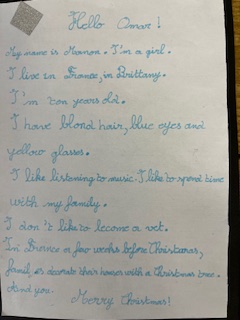 Hello Omar!
My name is Manon. I'm a girl.
I live in France, in Brittany.
I'm ten years old.
I have blond hair, blue eyes and
yellow glasses.
I like listening to music. I like to spend time
with my family.
I don't like to become a vet.
In France a few weeks before Christmas,
decorate their houses with a Christmas tree.
And you.
Merry Christmas!